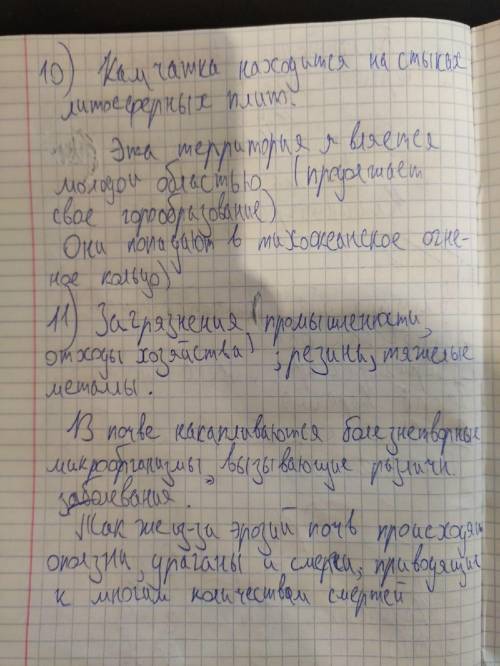 10) Камчатка находится на стыках
литосферных плит.
Эта территория является
молодой областью (продолжает
свое горообразование)
Они попадают в тихоокеанское огне-
ное кольцо)
11) Загрязнения (промышленности,
отходы хозяйства) ; резины, тяжелые
металлы.
В почве накапливаются болезнетворные
микроорганизмы, вызывающие различн.
заболевания.
Также из-за эрозий почв происходят
оползни, ураганы и смерчи, приводящие
к многим количествам смертей